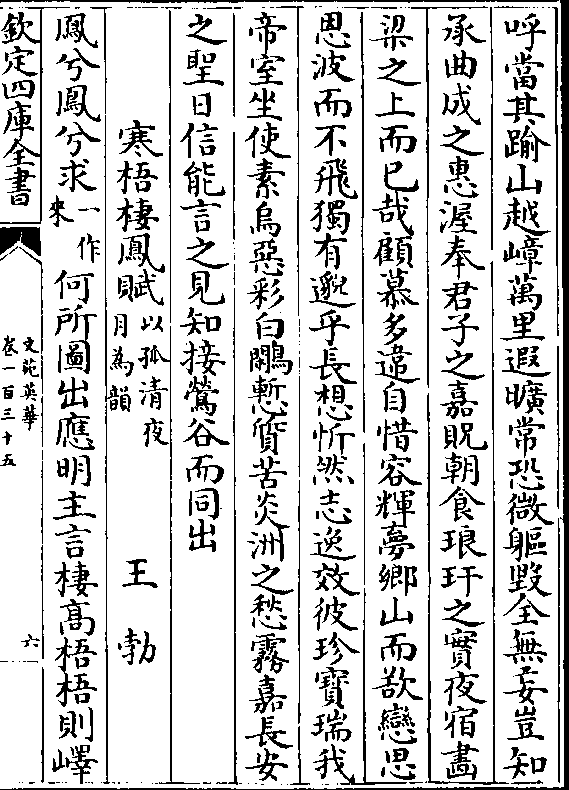 呼當其踰山越嶂萬里遐曠常恐微軀毀全無妄豈知
承曲成之惠渥奉君子之嘉貺朝食琅玕之實夜宿畫
梁之上而已哉顧慕多違自惜容輝夢鄉山而欲戀思
恩波而不飛獨有邈乎長想忻然志逸效彼珍寶瑞我
帝室坐使素烏惡彩白鷴慙質苦炎洲之愁霧嘉長安
之聖日信能言之見知接鶯谷而同出
寒梧棲鳳賦以孤清夜月為韻 王勃
鳳兮鳳兮求一作来何所圖出應明主言棲髙梧梧則嶧
欽定四庫全書
文苑英華
卷一百三十五
六